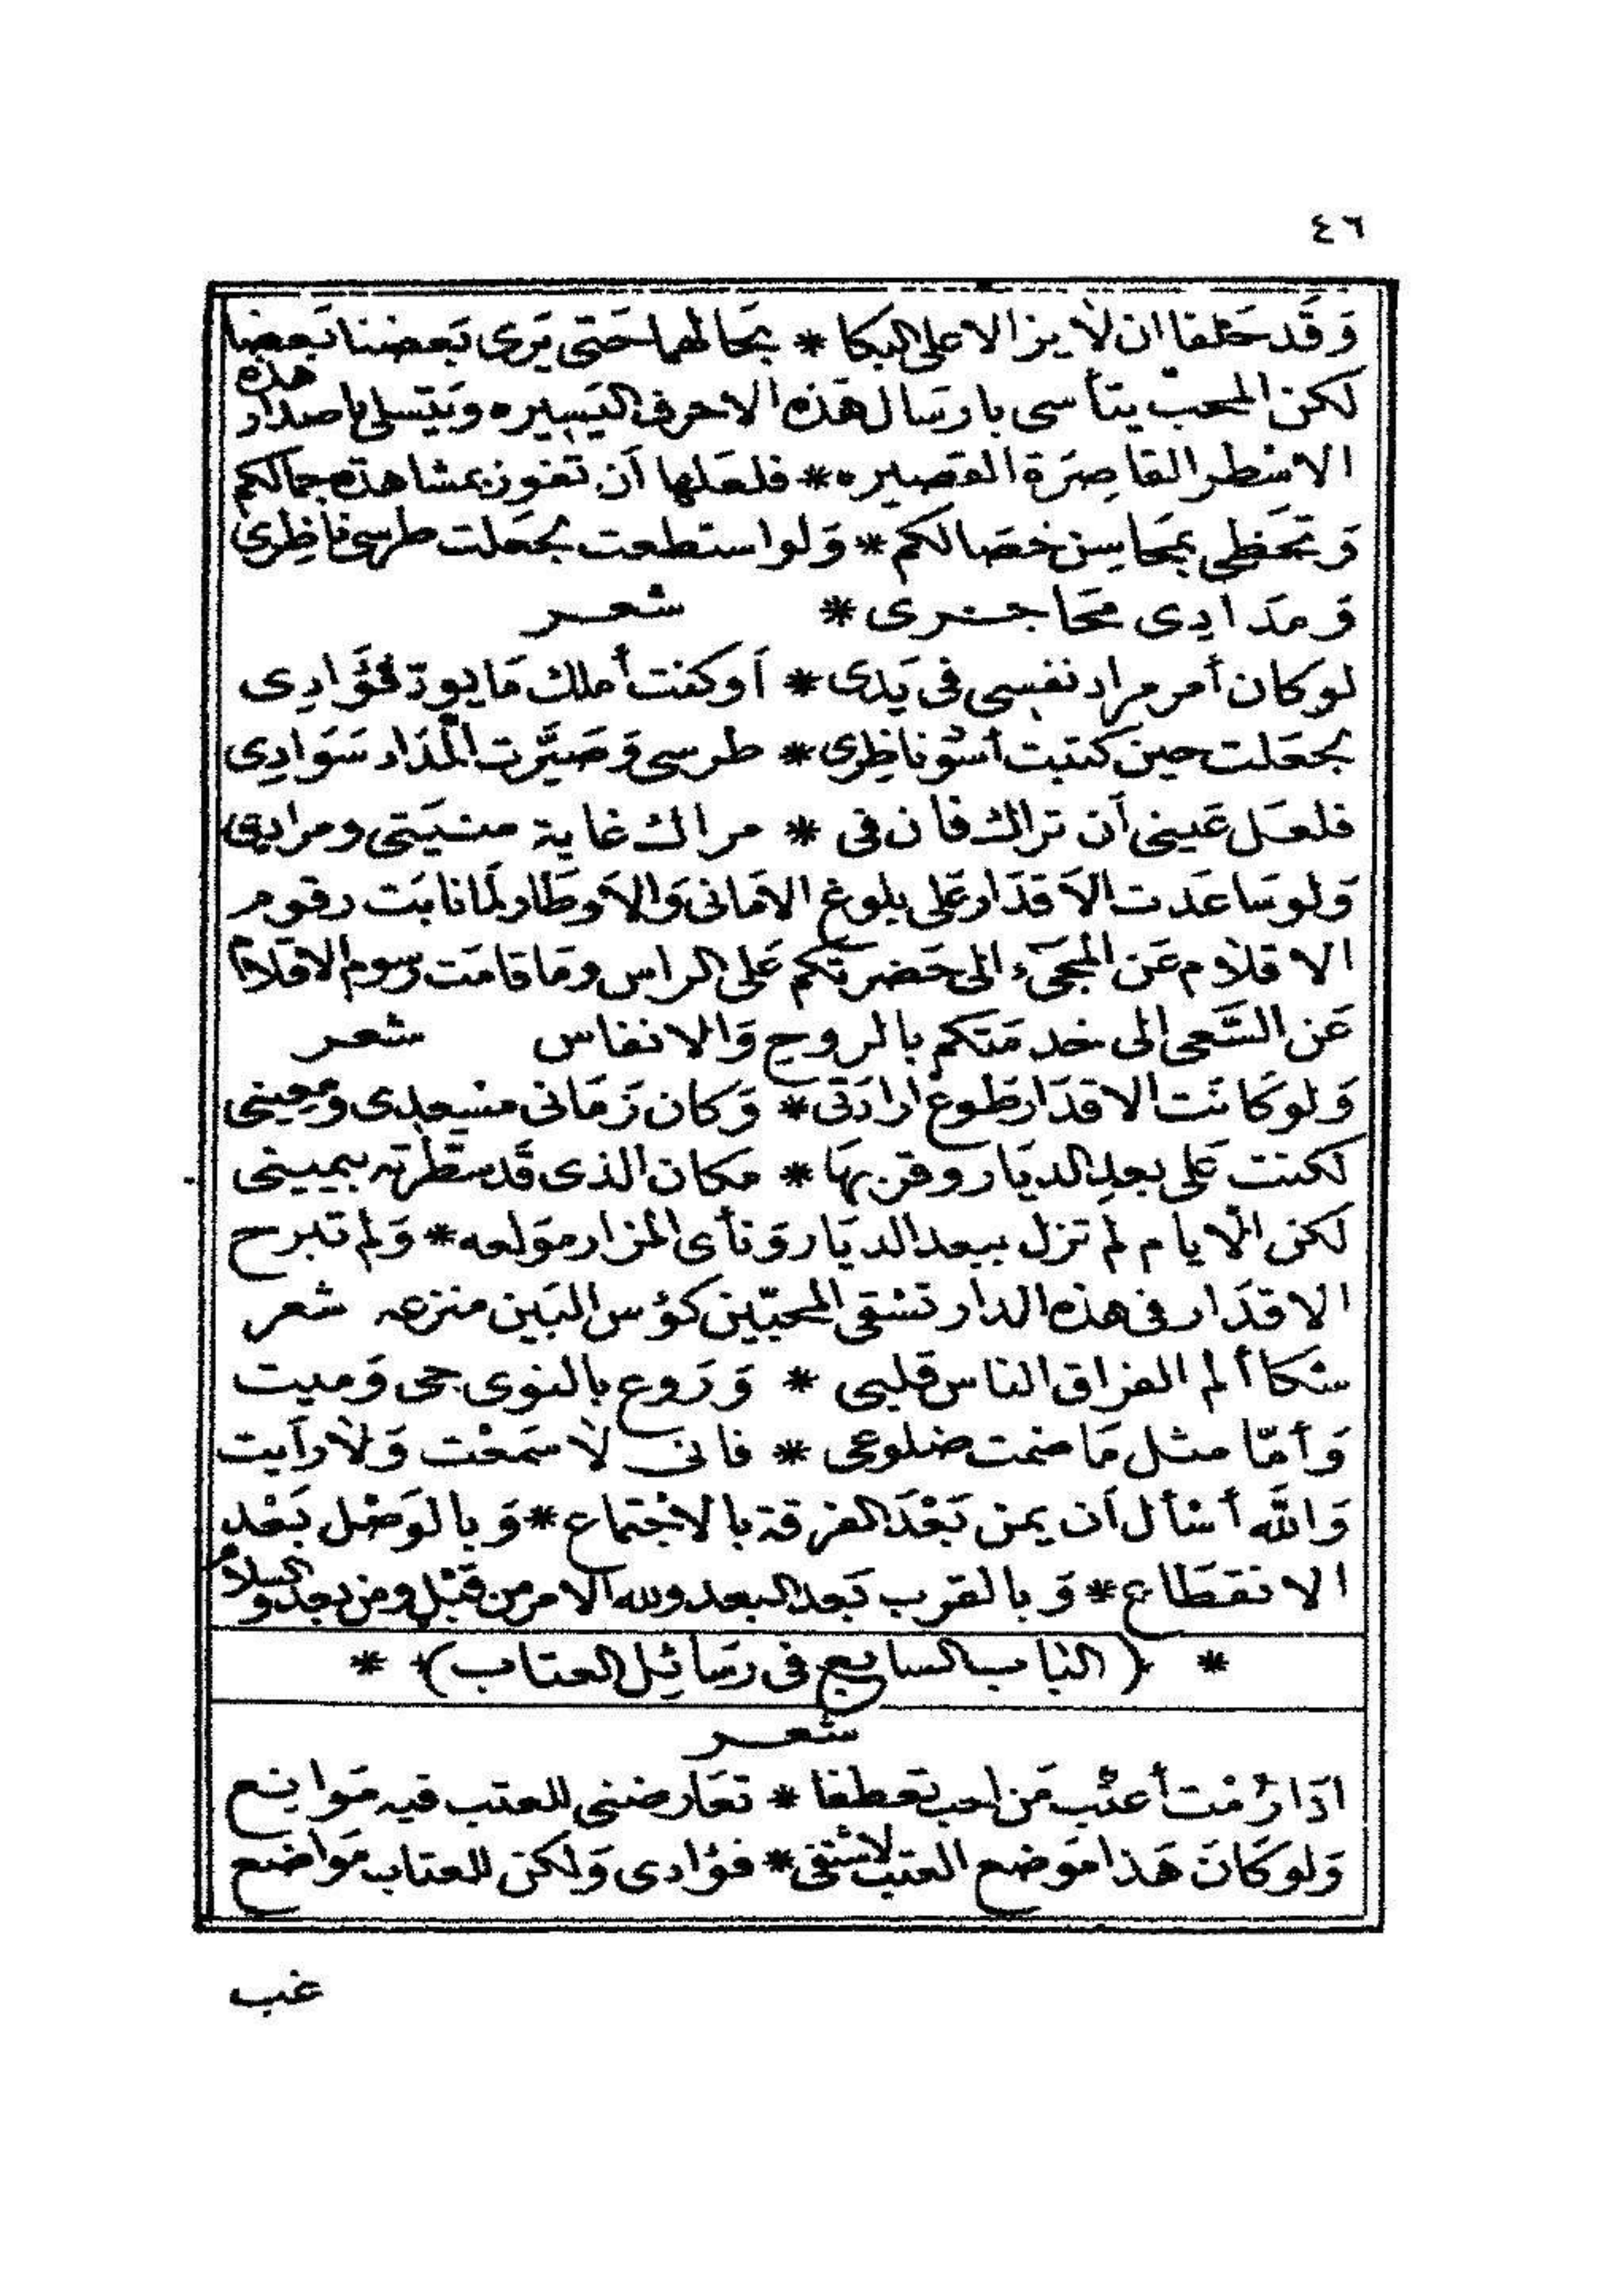 ٤٦
وَقَد حَلفا ان لا يزالا على البكا * بحالهما حَتى يَرى بَعضنا بَعضا
لكن المحب يتأسى بارسَال هَذه الاحرف اليَسِيره وَيَتسلى باصدار هذه
الاسْطر القاصِرَة القصيره * فلعَلها أن تفوز بمشاهدة جمالكم
وَتحَظى بمحَاسِن خصَالكم * وَلو استطعت لجعَلت طرسى ناظِرى
وَمدَادِى محَاجرى * شعر
لو كان أمر مراد نفسِى فى يَدى * أو كنت أملك مَا يود فؤَادِى
لجعَلت حين كتبت أسْوَ ناظِرى * طرسى وَصَيَّرت المْدَاد سَوَادِى
فلعَل عَينى أن تراك فان فى * مراك غاية منيَتى ومرادِى
وَلو سَاعَدت الأقدَار عَلى بلوغ الامَانى وَالأوطَار لمَا نابَت رقوم
الاقلام عَن المجَىء الى حَضرتكم عَلى الراس ومَا قامَت رسوم الاقلام
عَن السَّعى الى خدمَتكم بالروح وَالانفاس شعر
وَلو كَانَت الاقدَار طَوع ارادَتى * وَكان زَمَانى مسْعِدِى ومعِينى
لكنت عَلى بعدِ الديَار وقربهَا * مكان الذى قَد سَطرته بيمينى
لكن الايام لم تزل ببعد الديَار وَنأى المزار مَولعه * وَلم تبرح
الاقدَار فى هذه الدار تسْقى المحبّين كؤس البَين منزعه شعر
شكا ألم الفراق الناس قلبى * وَرَوع بالنوى حى وَميت
وَأمّا مثل مَا ضمت ضلوعى * فانى لا سَمعْت وَلا رأيت
وَاللَّه أسْأل أن يمن بَعْدَ الفرقة بالاجْتماع * وَبالوَصْل بَعْد
الانقطَاع * وَبالقرب بَعد البعد ولله الامر من قَبْل ومن بعد والسلام
* (البَاب السابع فى رسَائِل العتاب) *
شعر
اذَا رُمْت أعتْب مَن احب تعطفا * تعَارضنى للعتب فيه مَوانع
وَلو كَانَ هَذا مَوضع العتب لاشتفى * فؤادى وَلكن للعتاب مَواضع
غب